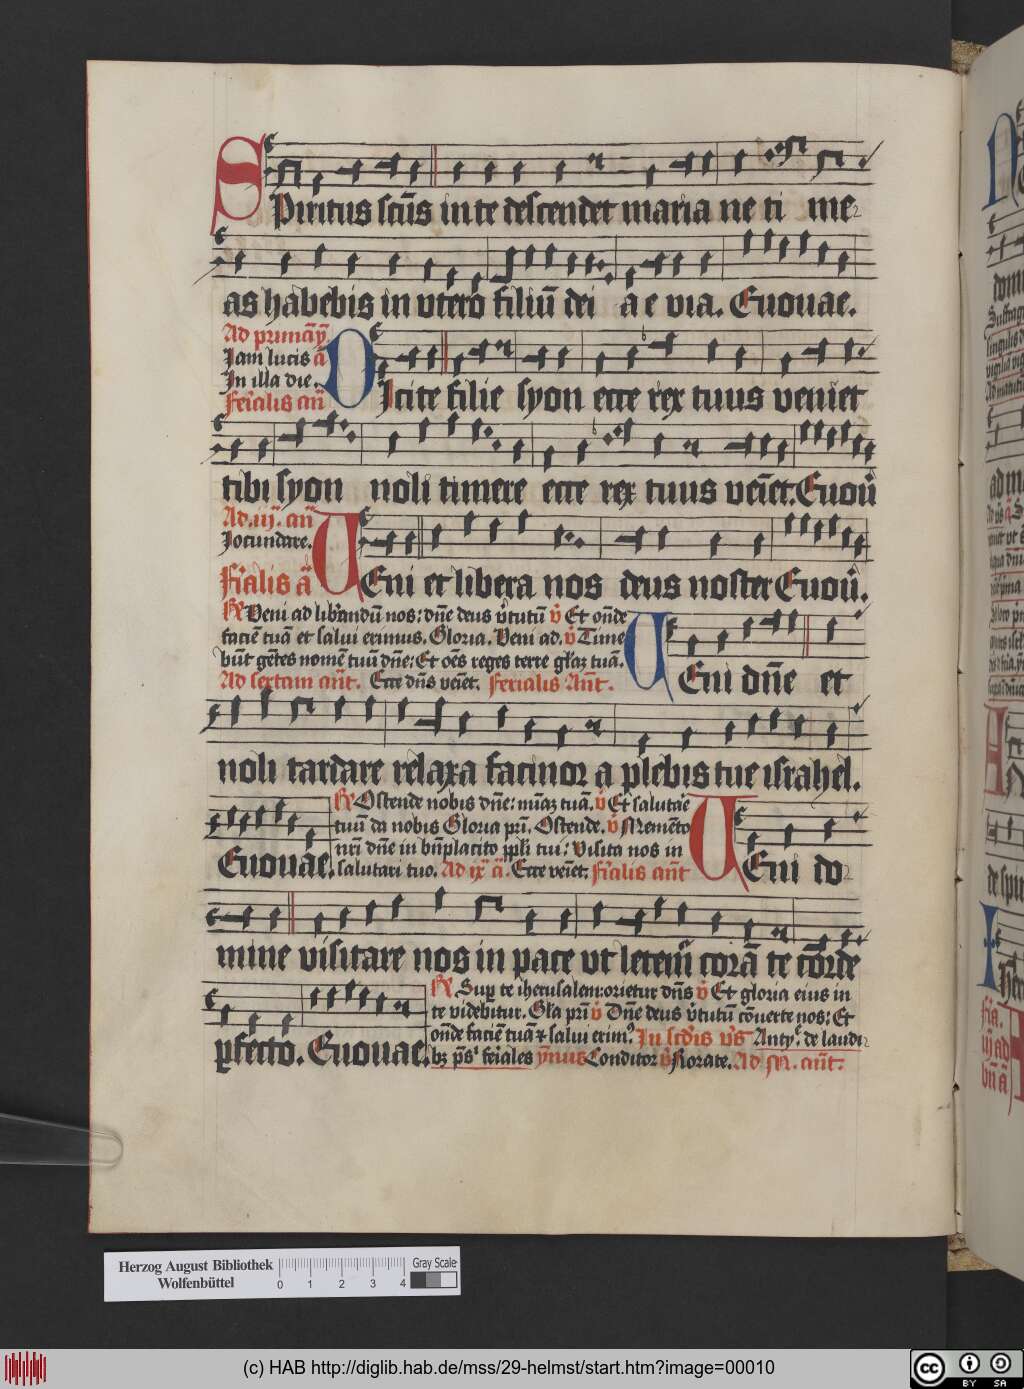 Spiritus sctūs in te descendet maria ne ti me
as habebis in utero filiū dei a e via. Euouae.
Ad primā ꝟ.
Iam lucis ā
In illa die.
Ferīalis an̄
Dicite filie syon ecce rex tuus veniet
tibi syon noli timere ecce rex tuus veīet. Euoū
Ad .iij. an̄
Iocundare.
Fīalis ā
Veni et libera nos deus noster Euoū.
R Veni ad libāndū nos: dn̄e deus v̄tutū ꝟ Et on̄de
faciē tuā et salui erimus. Gloria. Veni ad. ꝟ Time
būt gētes nomē tuū dn̄e: Et oēs reges terre gl̄az tuā.
Ad sextam ant̄. Ecce dn̄s veīet. Ferialis Ant̄.
Veni dn̄e et
noli tardare relaxa facinor a plebis tue israhel.
R Ostende nobis dn̄e: m̄az tuā. ꝟ Et salutāe
tuū da nobis Gloria prī. Ostende. ꝟ Memēto
nr̄i dn̄e in bn̄placito ppl̄i tui: Visita nos in
Euouae. salutari tuo. Ad ix ā. Ecce veīet. Fīalis ant̄
Veni do
mine visitare nos in pace ut letem̄ corā te corde
R Sup te iherusalem: orietur dn̄s ꝟ Et gloria eius in
te videbitur. Gl̄a prī ꝟ Dn̄e deus v̄tutū cōuerte nos: Et
on̄de faciē tuā ⁊ salui erim. In scd̄is vs̄ Anty. de laudi
pfecto. Euouae. bz ps̄ feīales ym̄us Conditor ꝟ Rorate. Ad M. ant̄.
Herzog August Bibliothek
Wolfenbüttel
0 1 2 3 4
Gray Scale
(c) HAB http://diglib.hab.de/mss/29-helmst/start.htm?image=00010
cc BY SA